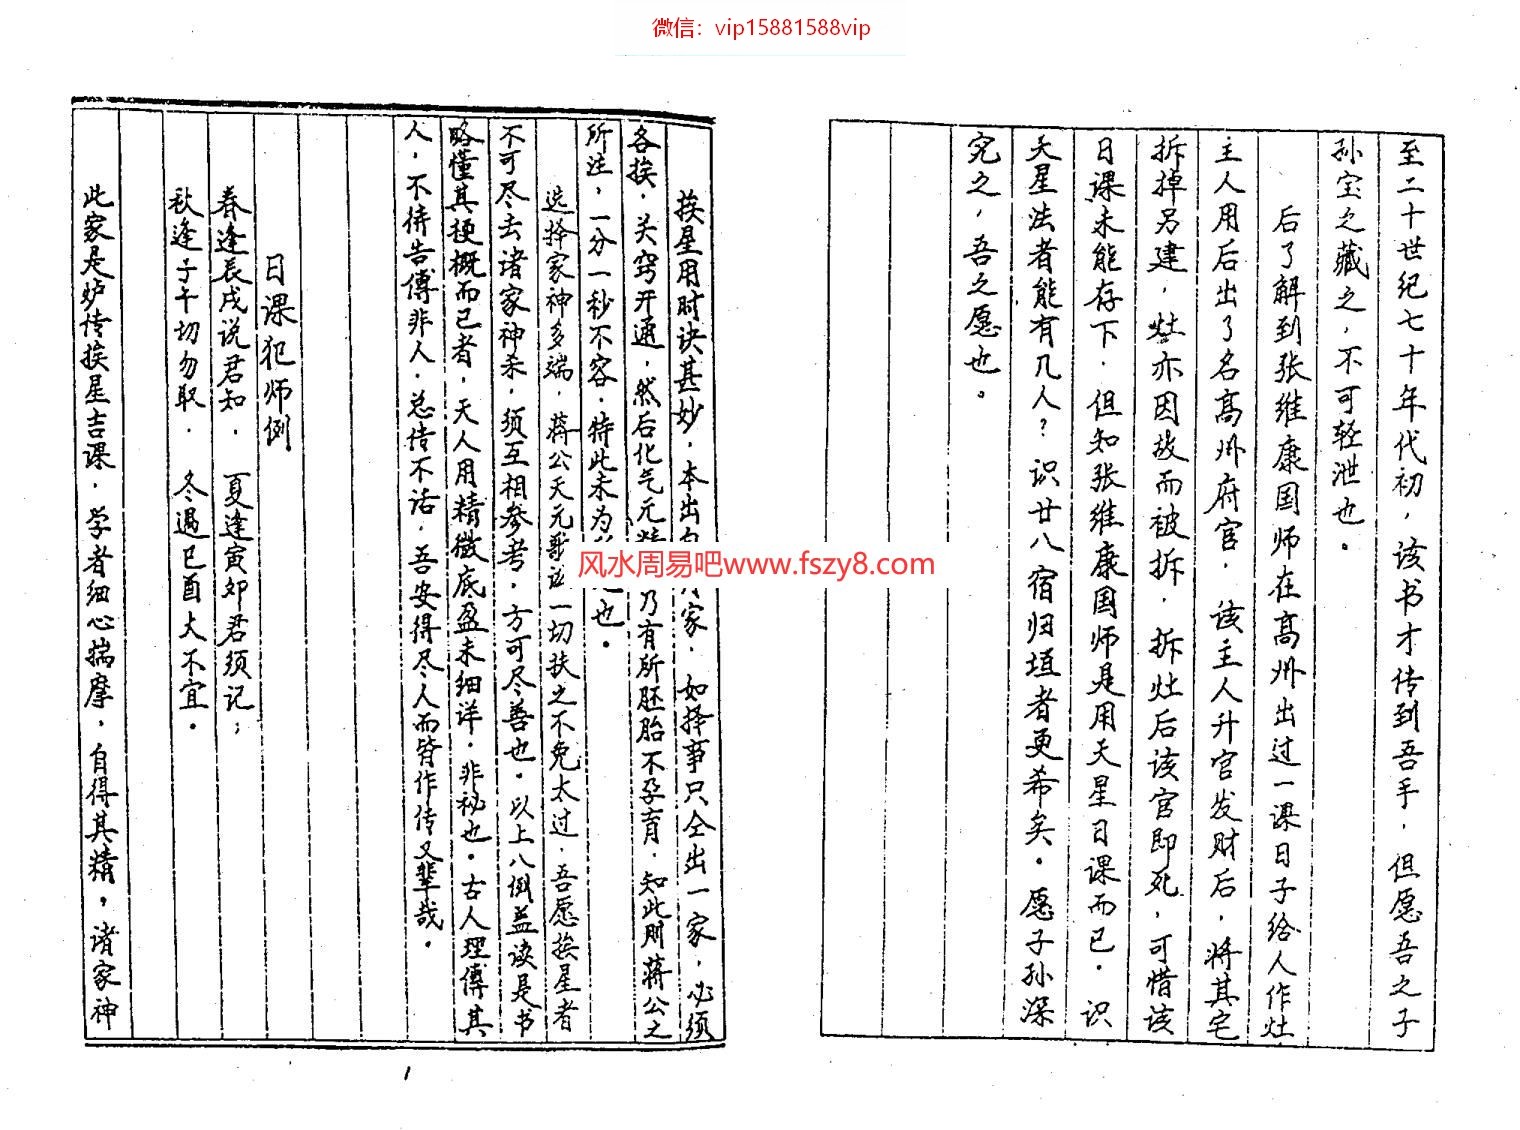 微信：vip15881588vip
至二十世纪七十年代初，该书才传到吾手．但愿吾之子
孙宝之藏之，不可轻泄也。
后了解到张维康国师在高州出过一课日子给人作灶
主人用后出了名高州府官．该主人升官发财后，将其宅
拆掉另建，灶亦因故而被拆．拆灶后该官即死，可惜该
日课未能存下．但知张维康国师是用天星日课而已．识
天星法者能有几人？识廿八宿归垣者更希矣。愿子孙深
究之，吾之愿也。
挨星用时诀甚妙．本出自 家．如择事只仝出一家，必须
各挨．关窍开通，然后化气元精 乃有所胚胎不孕育．知此则蒋公之
所注，一分一秒不容．特此未为 也。
选择家神多端．蒋公天元歌 一切扶之不免太过．吾愿挨星者
不可尽去诸家神杀．须互相参考．方可尽善也．以上八倒益读是书
略懂其梗概而已者．天人用精微底盈未细详．非秘也。古人理傅其
人．不待告傅非人．总传不话．吾安得尽人而皆作传又辈哉．
日课犯师例
春逢辰戌说君知． 夏逢寅卯君须记；
秋逢子午切勿取． 冬遇巳酉大不宜．
此家是妒传挨星吉课．学者细心揣摩，自得其精，诸家神
风水周易吧www.fszy8.com
1